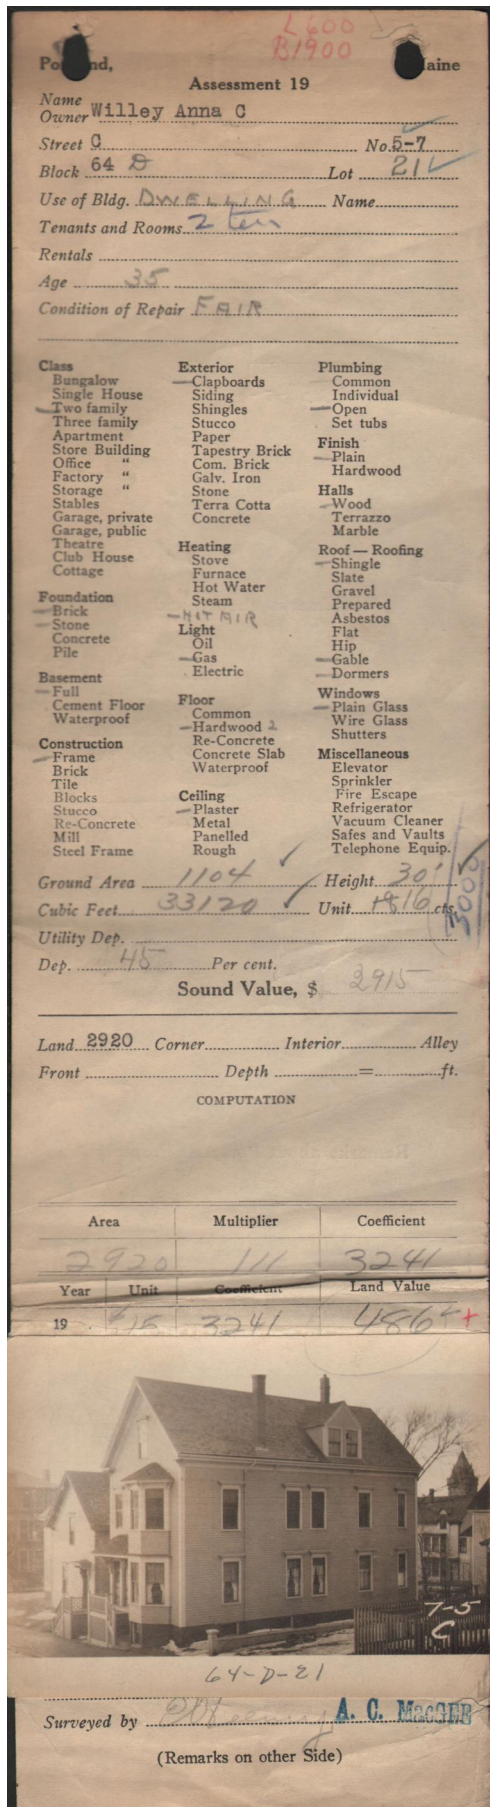 L 600
B 1900
Portland, Maine
Assessment 19
Name
Owner Willey Anna C
Street C No. 5-7
Block 64 D Lot 21
Use of Bldg. DWELLING Name
Tenants and Rooms 2 ten
Rentals
Age 35
Condition of Repair FAIR
Class
Bungalow
Single House
Two family
Three family
Apartment
Store Building
Office "
Factory "
Storage "
Stables
Garage, private
Garage, public
Theatre
Club House
Cottage
Foundation
Brick
Stone
Concrete
Pile
Basement
Full
Cement Floor
Waterproof
Construction
Frame
Brick
Tile
Blocks
Stucco
Re-Concrete
Mill
Steel Frame
Exterior
Clapboards
Siding
Shingles
Stucco
Paper
Tapestry Brick
Com. Brick
Galv. Iron
Stone
Terra Cotta
Concrete
Heating
Stove
Furnace
Hot Water
Steam
HOT AIR
Light
Oil
Gas
Electric
Floor
Common
Hardwood 2
Re-Concrete
Concrete Slab
Waterproof
Ceiling
Plaster
Metal
Panelled
Rough
Plumbing
Common
Individual
Open
Set tubs
Finish
Plain
Hardwood
Halls
Wood
Terrazzo
Marble
Roof — Roofing
Shingle
Slate
Gravel
Prepared
Asbestos
Flat
Hip
Gable
Dormers
Windows
Plain Glass
Wire Glass
Shutters
Miscellaneous
Elevator
Sprinkler
Fire Escape
Refrigerator
Vacuum Cleaner
Safes and Vaults
Telephone Equip.
Ground Area 1104 Height 30'
Cubic Feet 33120 Unit 16 cts.
3000
Utility Dep.
Dep. 45 Per cent.
Sound Value, $ 2915
Land 2920 Corner Interior Alley
Front Depth = ft.
COMPUTATION
Area Multiplier Coefficient
2920 111 3241
Year Unit Coefficient Land Value
19 15 3241 486 +
7-5
C
64-D-21
Surveyed by A. C. MacGEE
(Remarks on other Side)